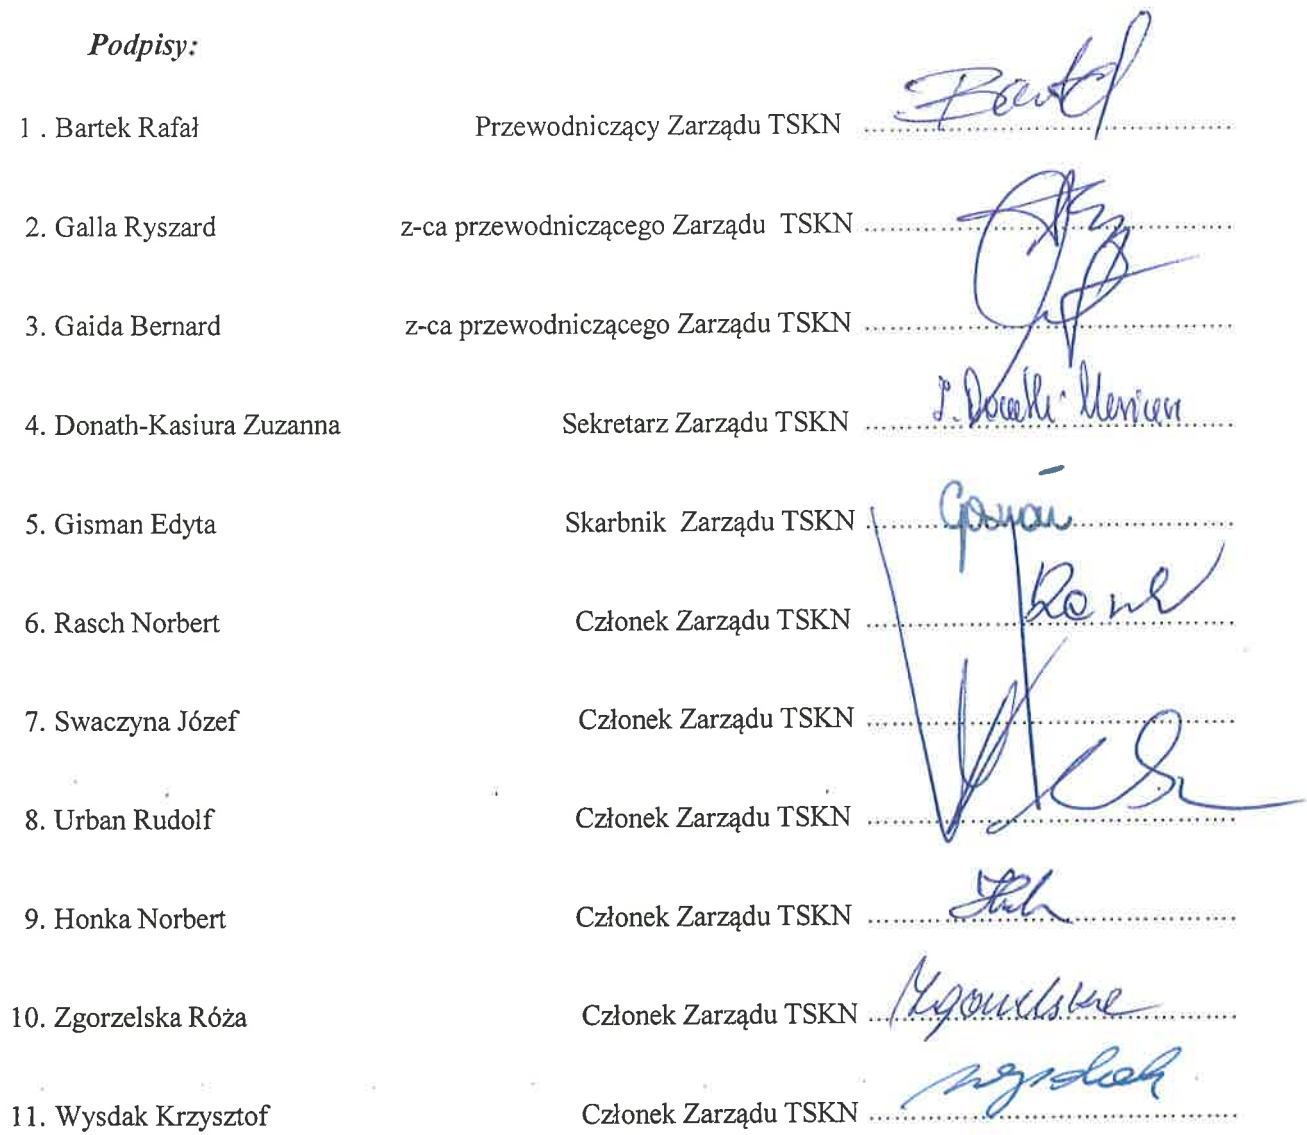 Podpisy:
1 . Bartek Rafał Przewodniczący Zarządu TSKN ........................................
2. Galla Ryszard z-ca przewodniczącego Zarządu TSKN ........................................
3. Gaida Bernard z-ca przewodniczącego Zarządu TSKN ........................................
4. Donath-Kasiura Zuzanna Sekretarz Zarządu TSKN ........................................
5. Gisman Edyta Skarbnik Zarządu TSKN ........................................
6. Rasch Norbert Członek Zarządu TSKN ........................................
7. Swaczyna Józef Członek Zarządu TSKN ........................................
8. Urban Rudolf Członek Zarządu TSKN ........................................
9. Honka Norbert Członek Zarządu TSKN ........................................
10. Zgorzelska Róża Członek Zarządu TSKN ........................................
11. Wysdak Krzysztof Członek Zarządu TSKN ........................................